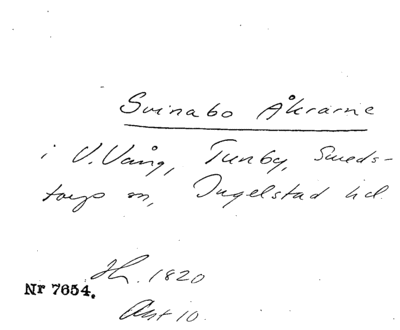 Svinabo Åkrarne
i V. Vång, Tunby, Smeds-
torps sn, Ingelstad hd.
Sk. 1820
Nr 7654.
Akt 10.